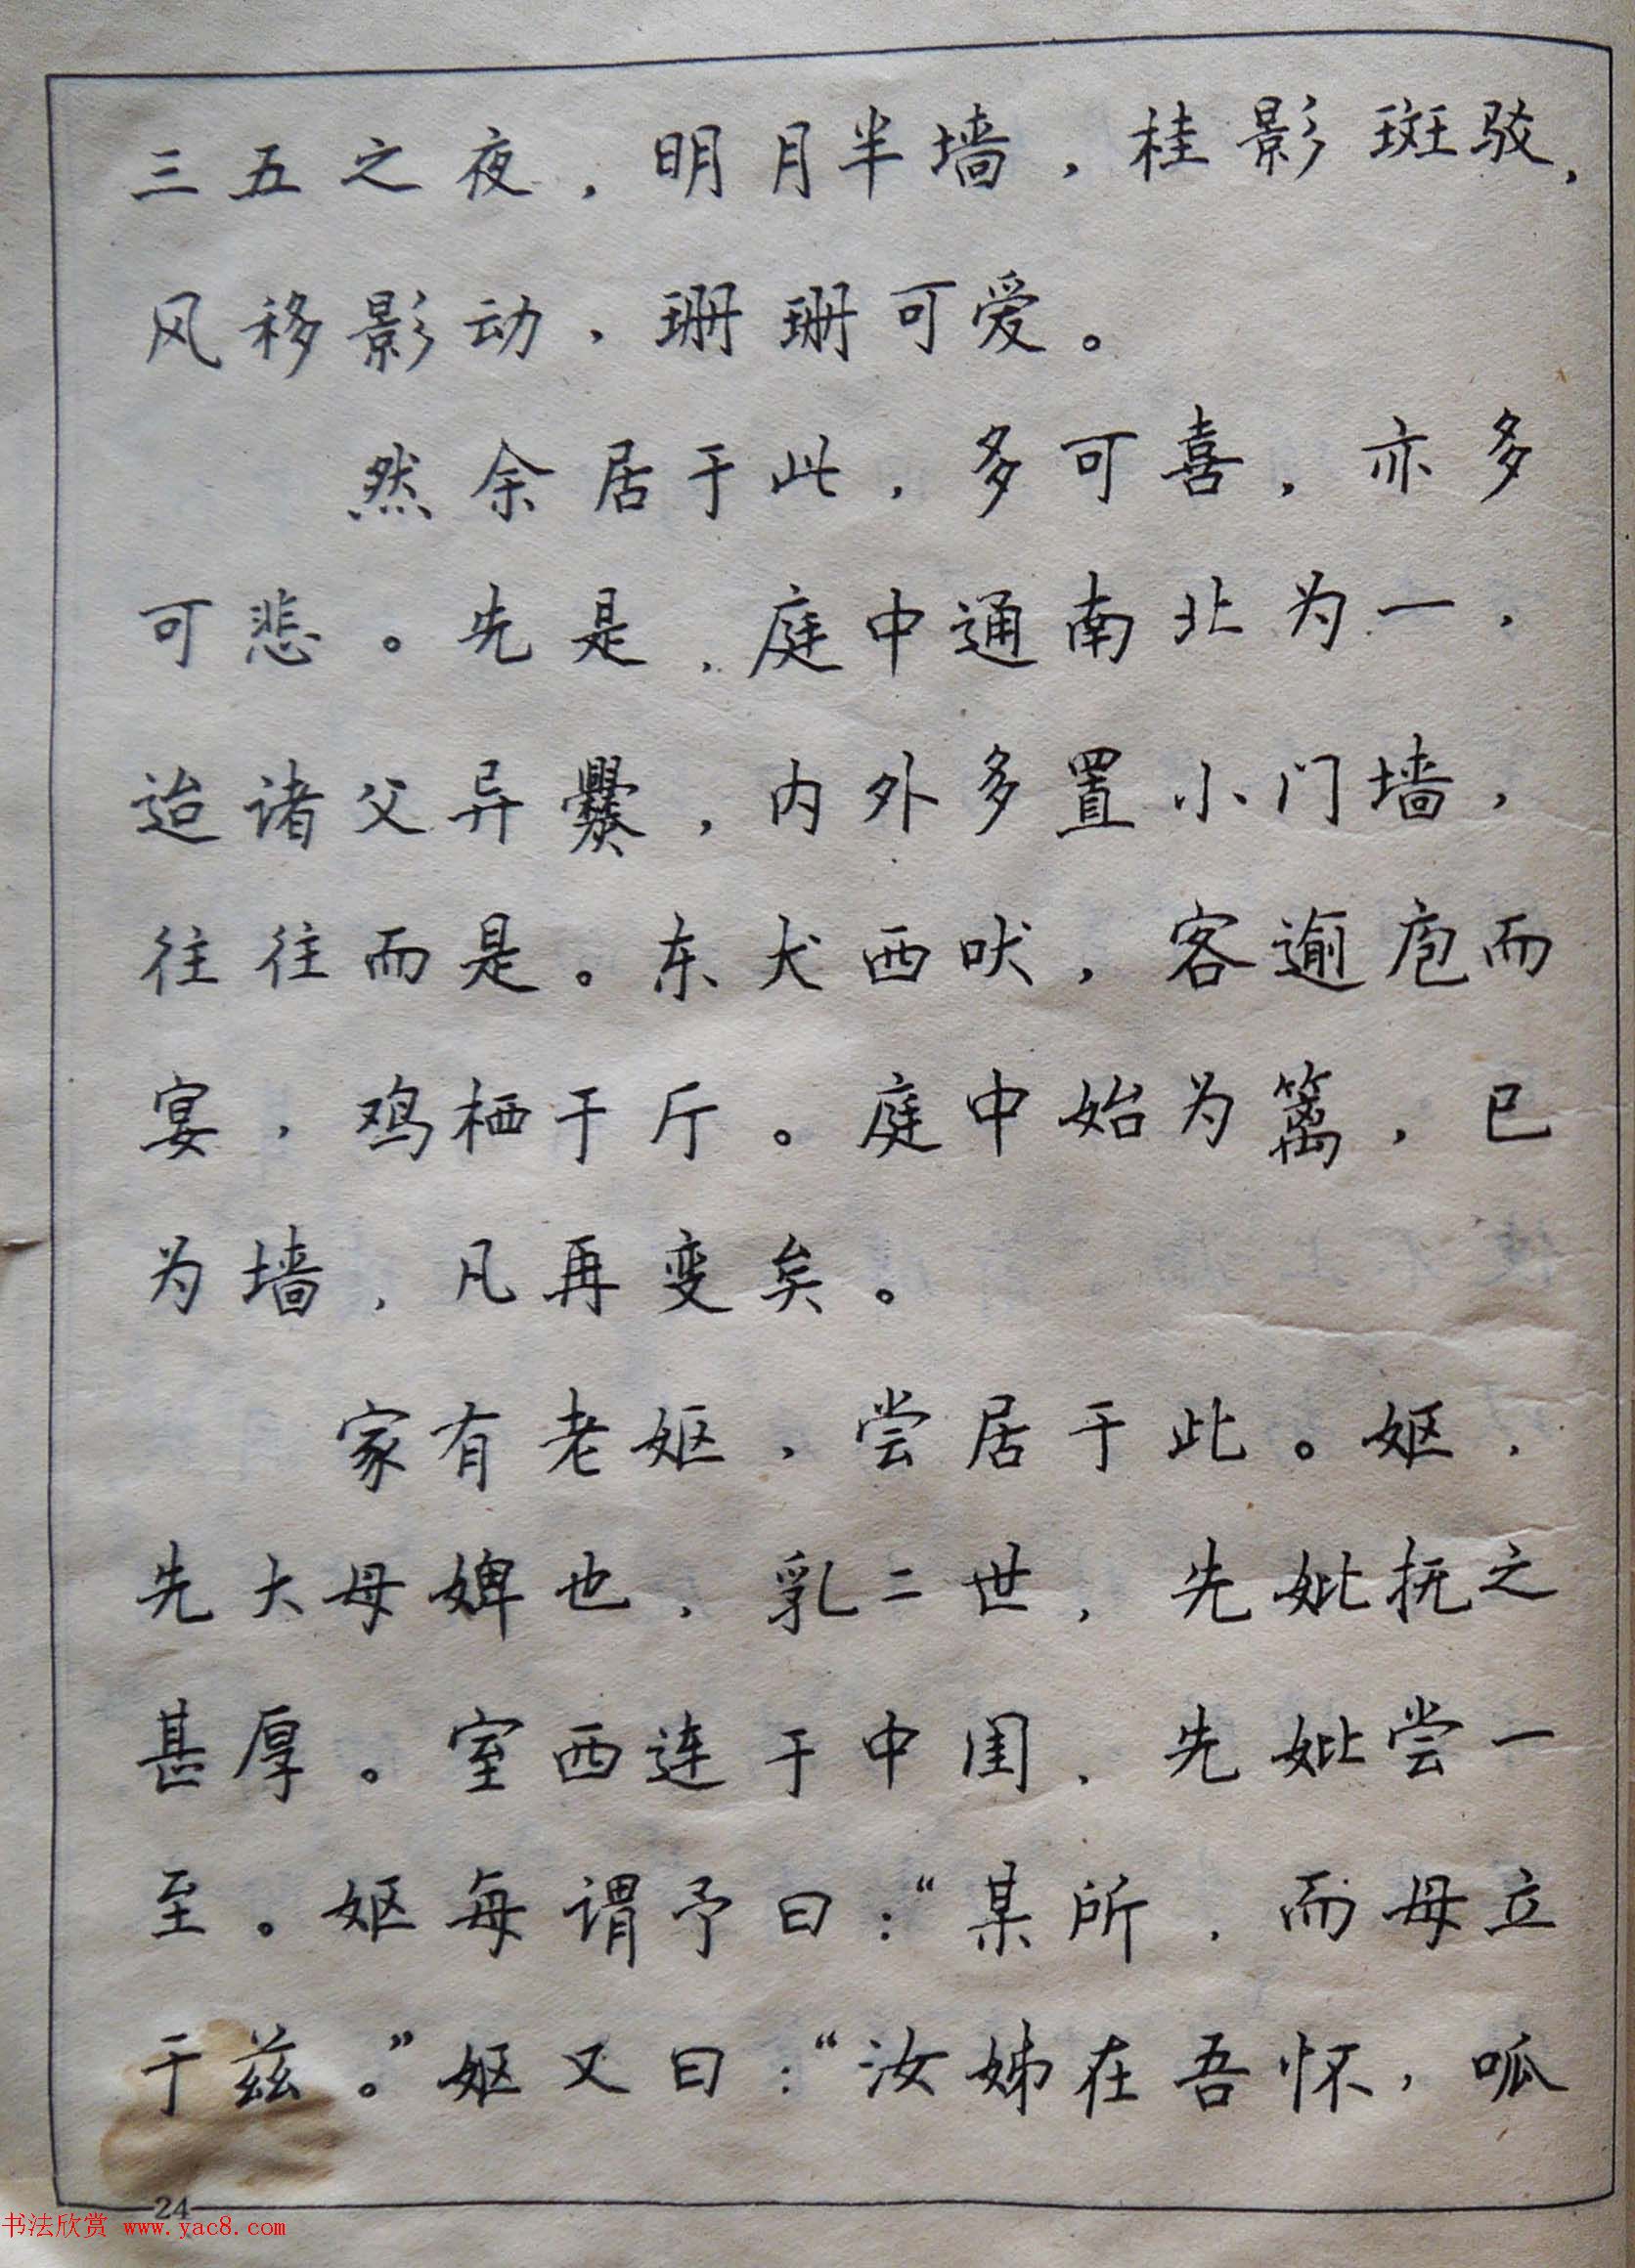 三五之夜，明月半墙，桂影斑驳，
风移影动，珊珊可爱。
然余居于此，多可喜，亦多
可悲。先是，庭中通南北为一，
迨诸父异爨，内外多置小门墙，
往往而是。东犬西吠，客逾庖而
宴，鸡栖于斤。庭中始为篱，已
为墙，凡再变矣。
家有老妪，尝居于此。妪，
先大母婢也，乳二世，先妣抚之
甚厚。室西连于中闺，先妣尝一
至。妪每谓予曰：“某所，而母立
于兹。”妪又曰：“汝姊在吾怀，呱
24
书法欣赏 www.yac8.com